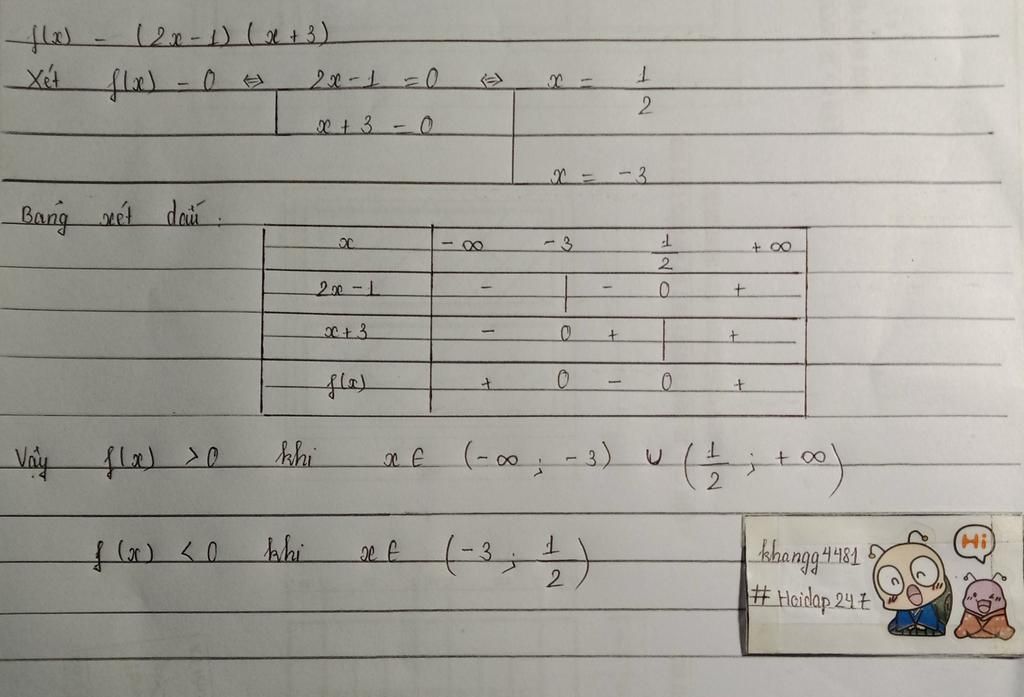 f(x) = (2x-1)(x+3)
Xét f(x) = 0 ⇔ 2x-1 = 0 ⇔ x = 1/2
x+3 = 0
x = -3
Bảng xét dấu:
x -∞ -3 1/2 +∞
2x-1 - | - 0 +
x+3 - 0 + | +
f(x) + 0 - 0 +
Vậy f(x) > 0 khi x ∈ (-∞ ; -3) ∪ (1/2 ; +∞)
f(x) < 0 khi x ∈ (-3 ; 1/2)
Hi
khangg4481
# Hoidap247